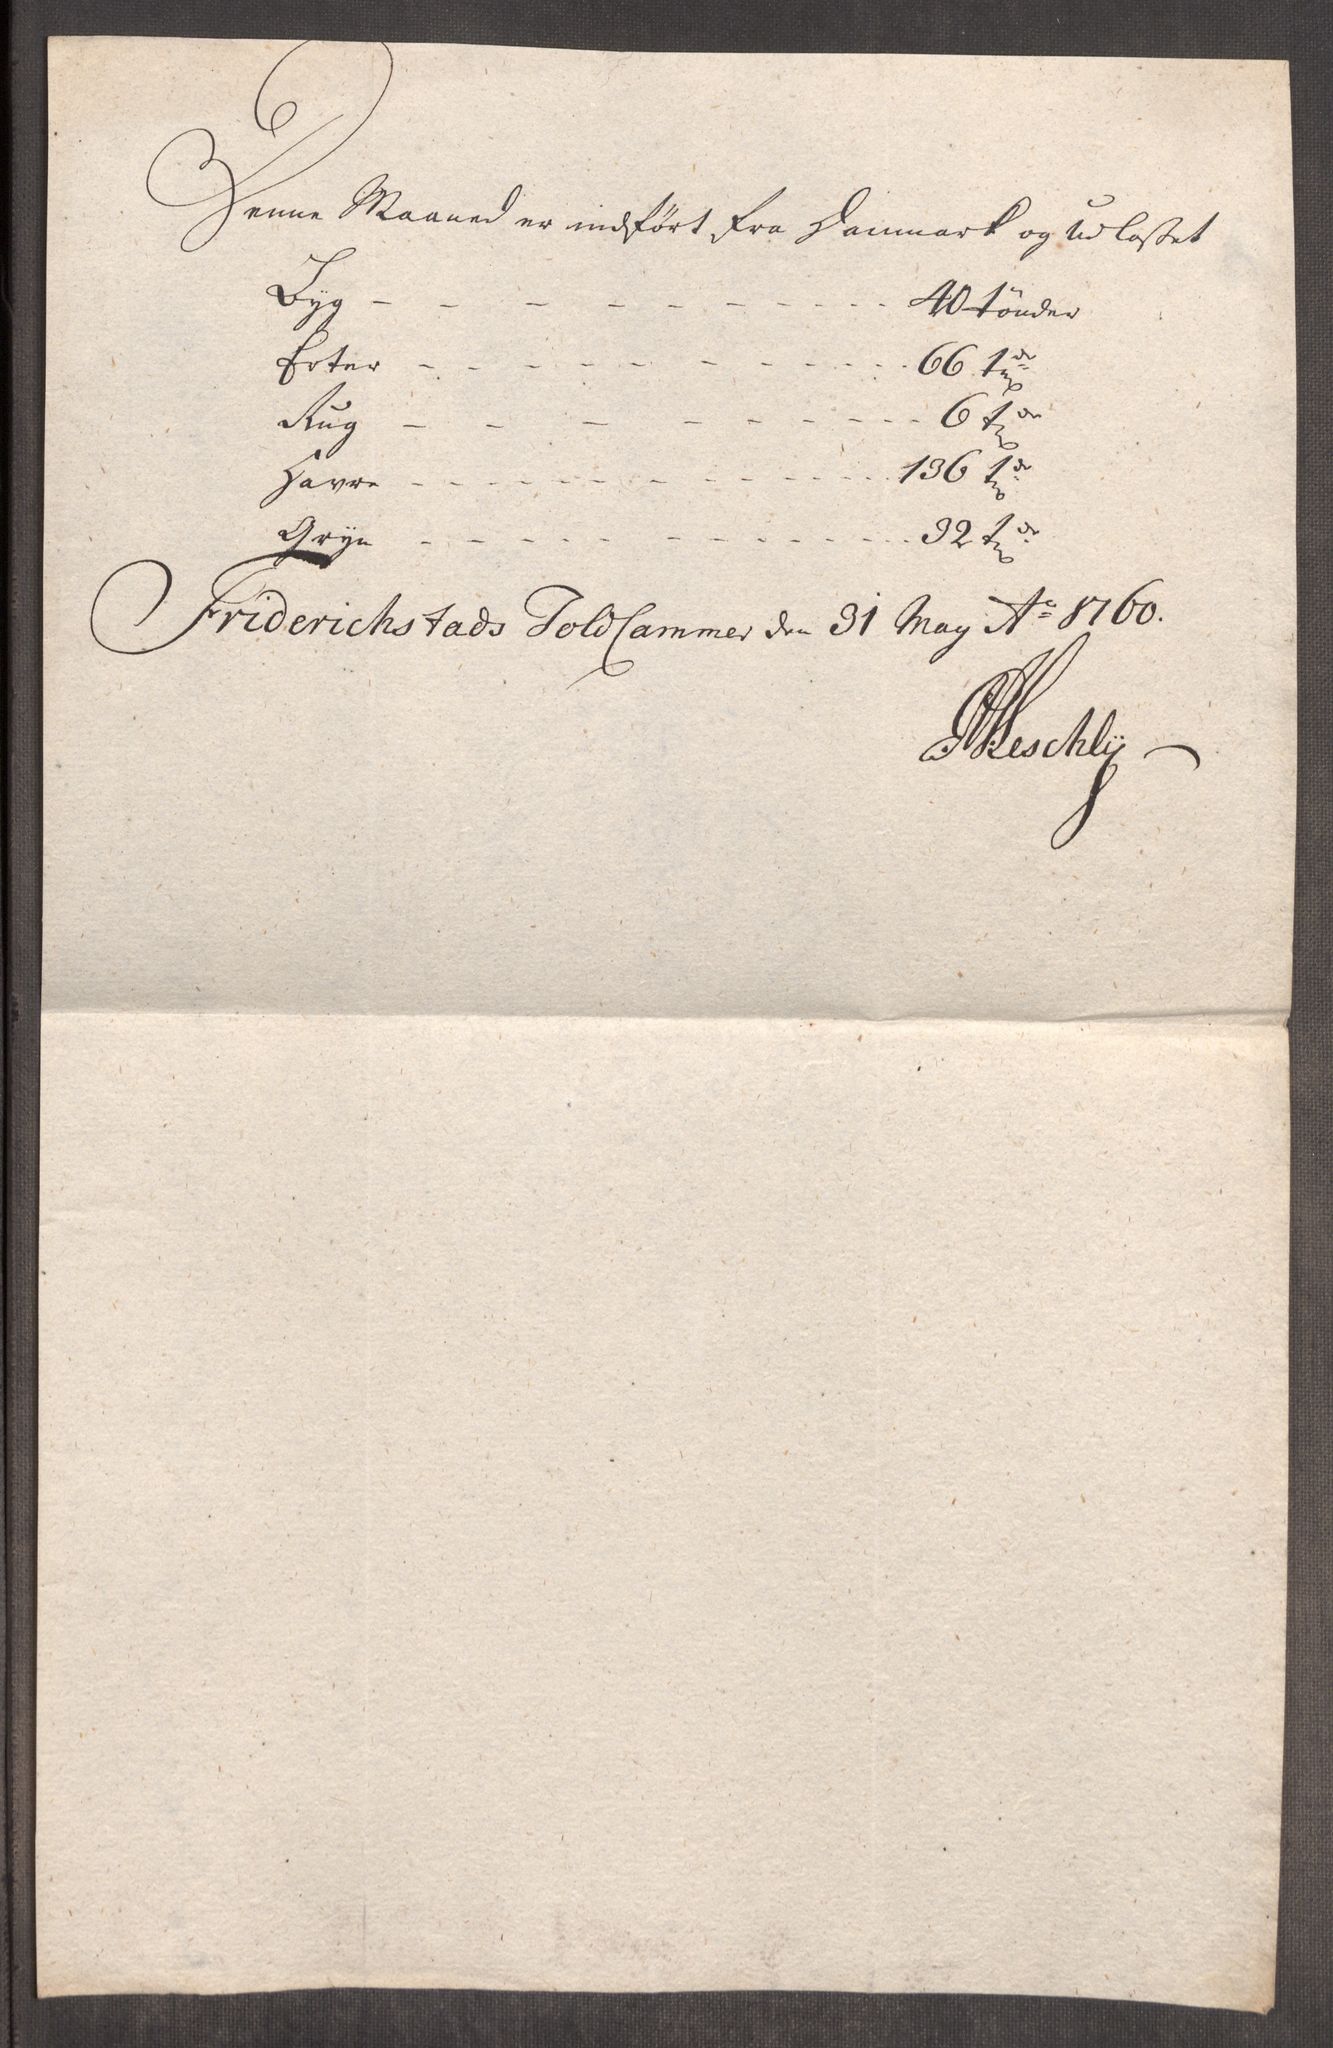 Denne Maaned er indført fra Danmark og udlosset
Byg - - - - - - - - - - 40 tönder
Erter - - - - - - - - - - 66 tdr
Rug - - - - - - - - - - 6 tdr
Havre - - - - - - - - - - 136 tdr
Gryn - - - - - - - - - - 32 tdr
Friderichstads Told Cammer den 31 May Ao 1760.